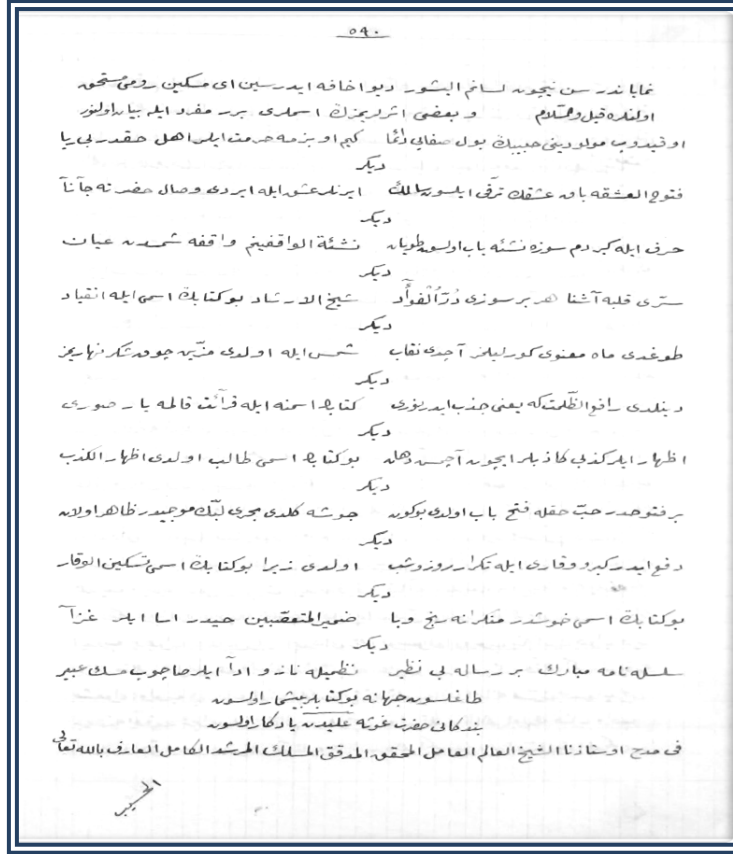 ٥٩٠
نمایاندر سن نیچون لسانم البشور دیو اخافه ایدرسین ای مسکین رومی مستحق
اولنلره قیل والسلام و بعضی اثرلریمزڭ اسملری برر مفرد ایله بیان اولنور
اوقیدوب مولودینی حبیبڭ بول صفالی دائما کیم او بزمه حرمت ایلر اهل حقدر بی ریا
دیکر
فتوح العشقه باق عشقڭ ترقی ایلسون سالك ایرنلر عشق ایله ایردی وصال حضرته جاناً
دیکر
حرف ایله کیردم سوزه نشئه یاب اولسون طویان نشئة الواقفینم واقفه شمسدن عیان
دیکر
ستری قلبه آشنا هر بر سوزی درّ الفؤاد شیخ الارشاد بو کتابڭ اسمی ایله انقیاد
دیکر
طوغدی ماه معنوی کورلیلر آچدی نقاب شمس ایله اولدی مزین چوق شکر نهاریمز
دیکر
دینلدی رافع الظلمت که یعنی جذب ایدر یوری کتابڭ اسمنه ایله قرائت قالمه یا ر صوری
دیکر
اظهار ایلر کذبی کاذبلر ایچون آچسن دهن بو کتابڭ اسمی طالب اولدی اظهار الکذب
دیکر
بر فتوحدر حبّ حقله فتح یاب اولدی بوکون جوشه کلدی مجری لبّڭ موجیدر ظاهر اولان
دیکر
دفع ایدر کبر و وقاری ایله تکرار روز و شب اولدی زیرا بو کتابڭ اسمی تسکین الوقار
دیکر
بو کتابڭ اسمی خوشدر منکرانه رنج وبا ضمیر المتعصبین حیدر اسا ایلر غزآ
دیکر
سلسله نامه مبارك بر رساله بی نظیر نظمیله ناز و ادا ایلر صاچوب مسك عبیر
طاغلسون جهانه بو کتابلر بیشمار اولسون
بندکانی حضرت غوثه علیدن یادکار اولسون
فی مدح اوستاذنا الشیخ العالم العامل المحقق المدقق المسلك المرشد الكامل العارف بالله تعالی